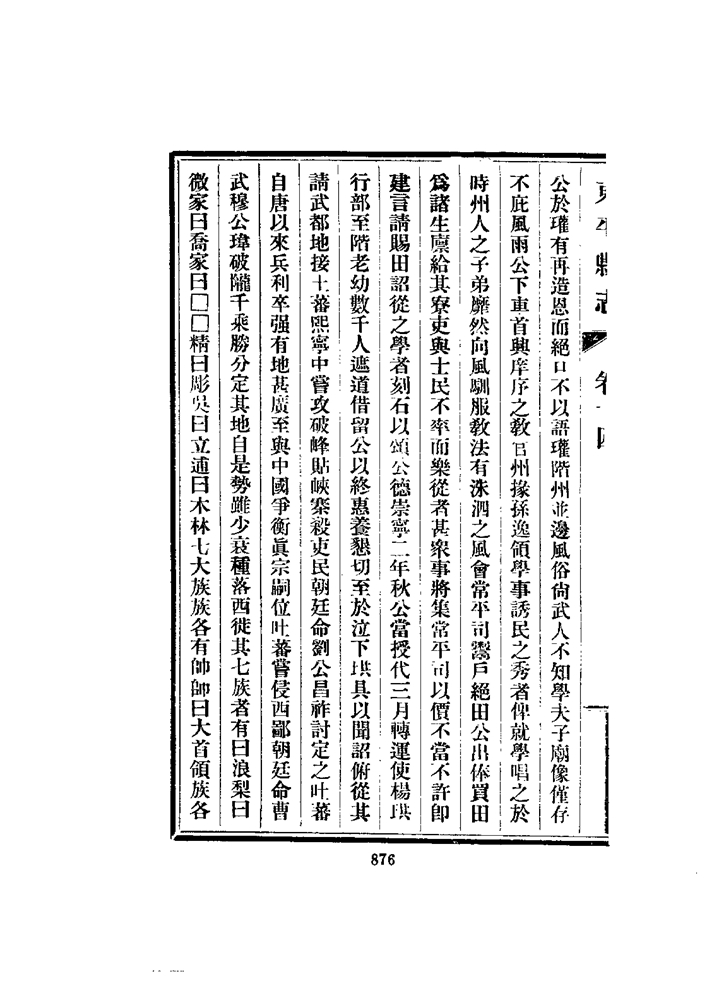 東平縣志 卷十四
公於瓘有再造恩而絕口不以語瓘階州並邊風俗尙武人不知學夫子廟像僅存
不庇風雨公下車首興庠序之敎官州掾孫逸領學事誘民之秀者俾就學唱之於
時州人之子弟靡然向風馴服敎法有洙泗之風會常平司鬻戶絕田公出俸買田
爲諸生廩給其寮吏與士民不率而樂從者甚衆事將集常平司以價不當不許卽
建言請賜田詔從之學者刻石以頌公德崇寧二年秋公當授代三月轉運使楊珙
行部至階老幼數千人遮道借留公以終惠養懇切至於泣下珙具以聞詔俯從其
請武都地接土蕃熙寧中嘗攻破峰貼峽寨殺吏民朝廷命劉公昌祚討定之吐蕃
自唐以來兵利卒强有地甚廣至與中國爭衡眞宗嗣位吐蕃嘗侵西鄙朝廷命曹
武穆公瑋破隴千乘勝分定其地自是勢雖少衰種落西徙其七族者有曰浪梨曰
微家曰喬家曰□□精曰彫吳曰立逋曰木林七大族族各有帥帥曰大首領族各
876